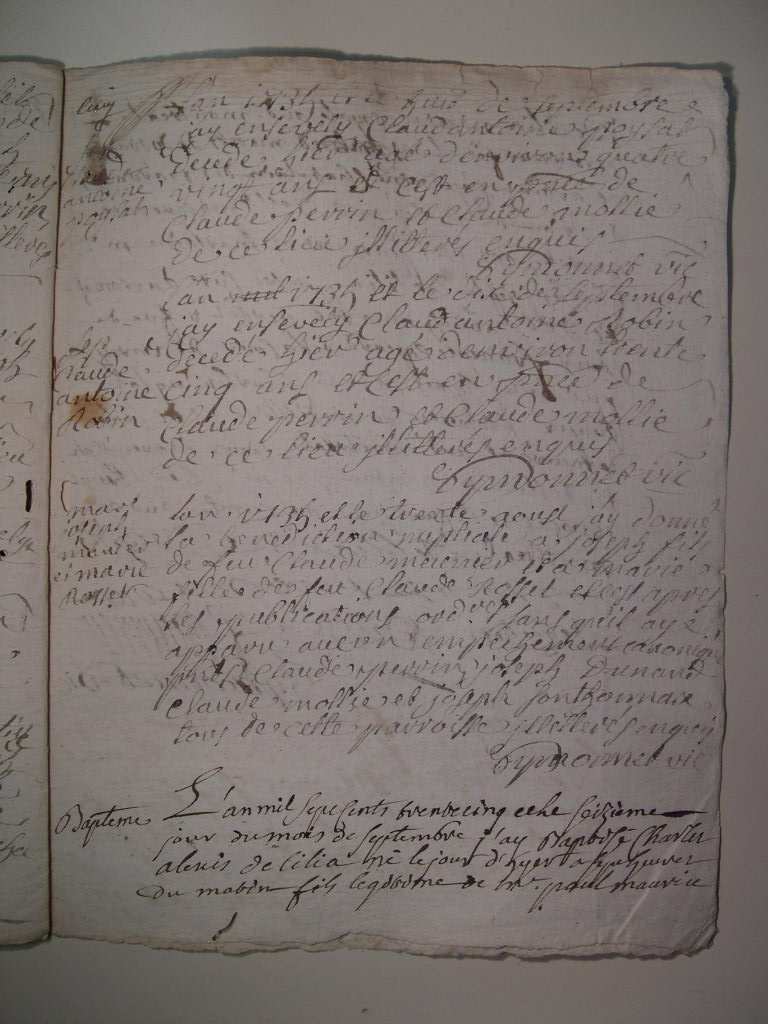 Lan 1735 et le huit de septembre
jay ensevely Claud antoine poysat
decede hier age denviron quatre
vingt ans et cest en pnce de
Claude perrin et Claude mollie
de ce lieu jllitteres enquis
Symonnet vic
Lan mil 1735 et le dix de septembre
jay ensevely Claud antoine Robin
decede hier age denviron trente
cinq ans et cest en pnce de
Claude perrin et Claude mollie
de ce lieu jllitteres enquis
Symonnet vic
Claude
antoine
Robin
mari
joseph
munier
et marie
Rosset
lan 1735 et le trente aoust jay donné
la benediction nuptiale a joseph fils
de feu Claude meunier et a marie
fille de feu Claude Rosset et cest apres
les publications ordres sans quil aye
apparu aucun empeschement canoniq
pnts Claude perrin joseph Dunand
Claude mollie et joseph
tous de cette parroisse jllitteres enquis
Symonnet vic
Bapteme
L'an mil sept cents trente cinq et le seizieme
jour du mois de septembre j'ay Baptisé Charles
alexis de lilia né le jour d'hyer a
du matin fils legitime de mr. paul maurice